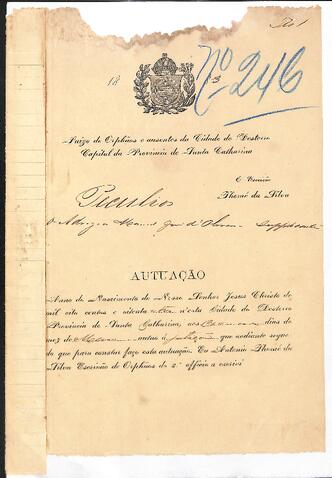 Fls 1
Nº 246
18
Juizo de Orphãos e ausentes da Cidade do Desterro
Capital da Provincia de Santa Catharina
O Escrivão
Thomé da Silva
Peculios
O
AUTUAÇÃO
Anno do Nascimento de Nosso Senhor Jesus Christo de
mil oito centos e oitenta n'esta Cidade do Desterro
Provincia de Santa Catharina, aos dias do
mez de autuo a petição que adiante segue
do que para constar faço esta autuação. Eu Antonio Thomé da
Silva Escrivão de Orphãos do 2º officio a escrevi